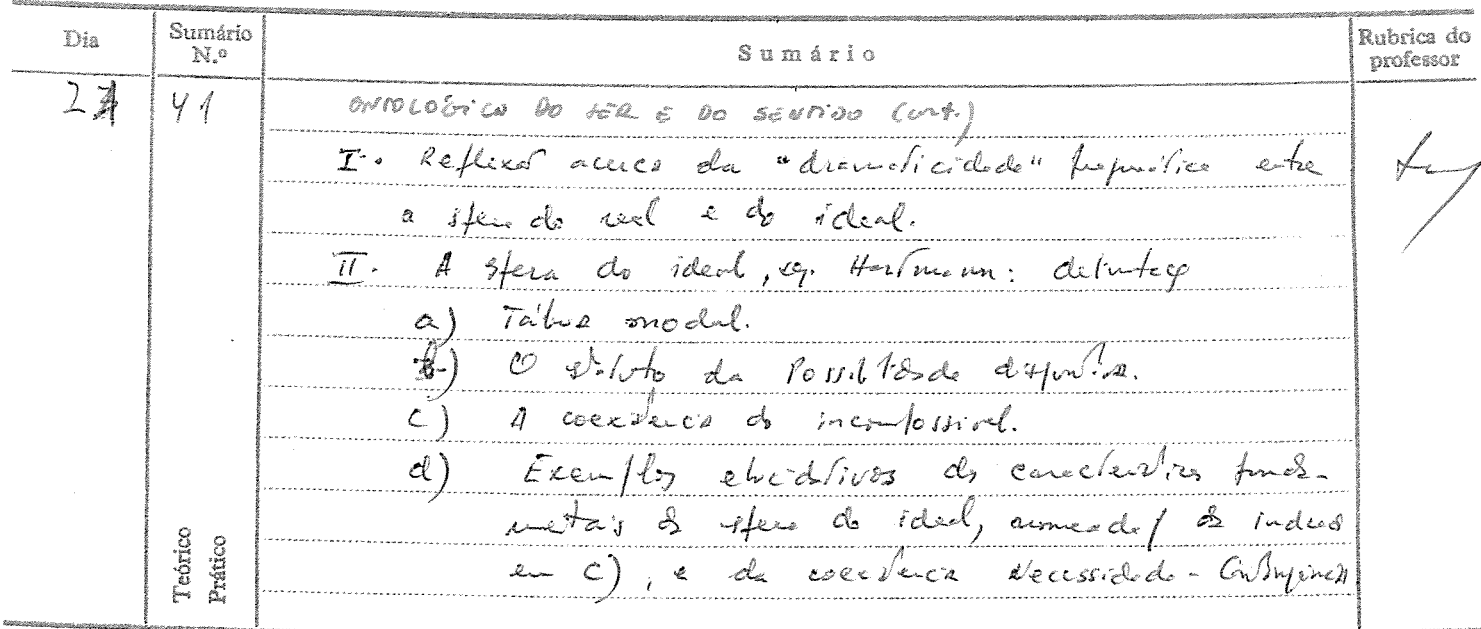 Dia
Sumário N.º
Sumário
Rubrica do professor
27
41
ONTOLÓGICA DO SER E DO SENTIDO (cont.)
I. Reflexão acerca da "dramaticidade" entre
a sfera do real e do ideal.
II. A sfera do ideal, sg. Hartmann:
a) Tábua modal.
b) O estatuto da Possibilidade disjuntiva.
c) A coexistência do incompossível.
d) Exemplos elucidativos das características funda-
mentais da sfera do ideal, da
em c), e da coexistência Necessidade - Contingência
Teórico
Prático